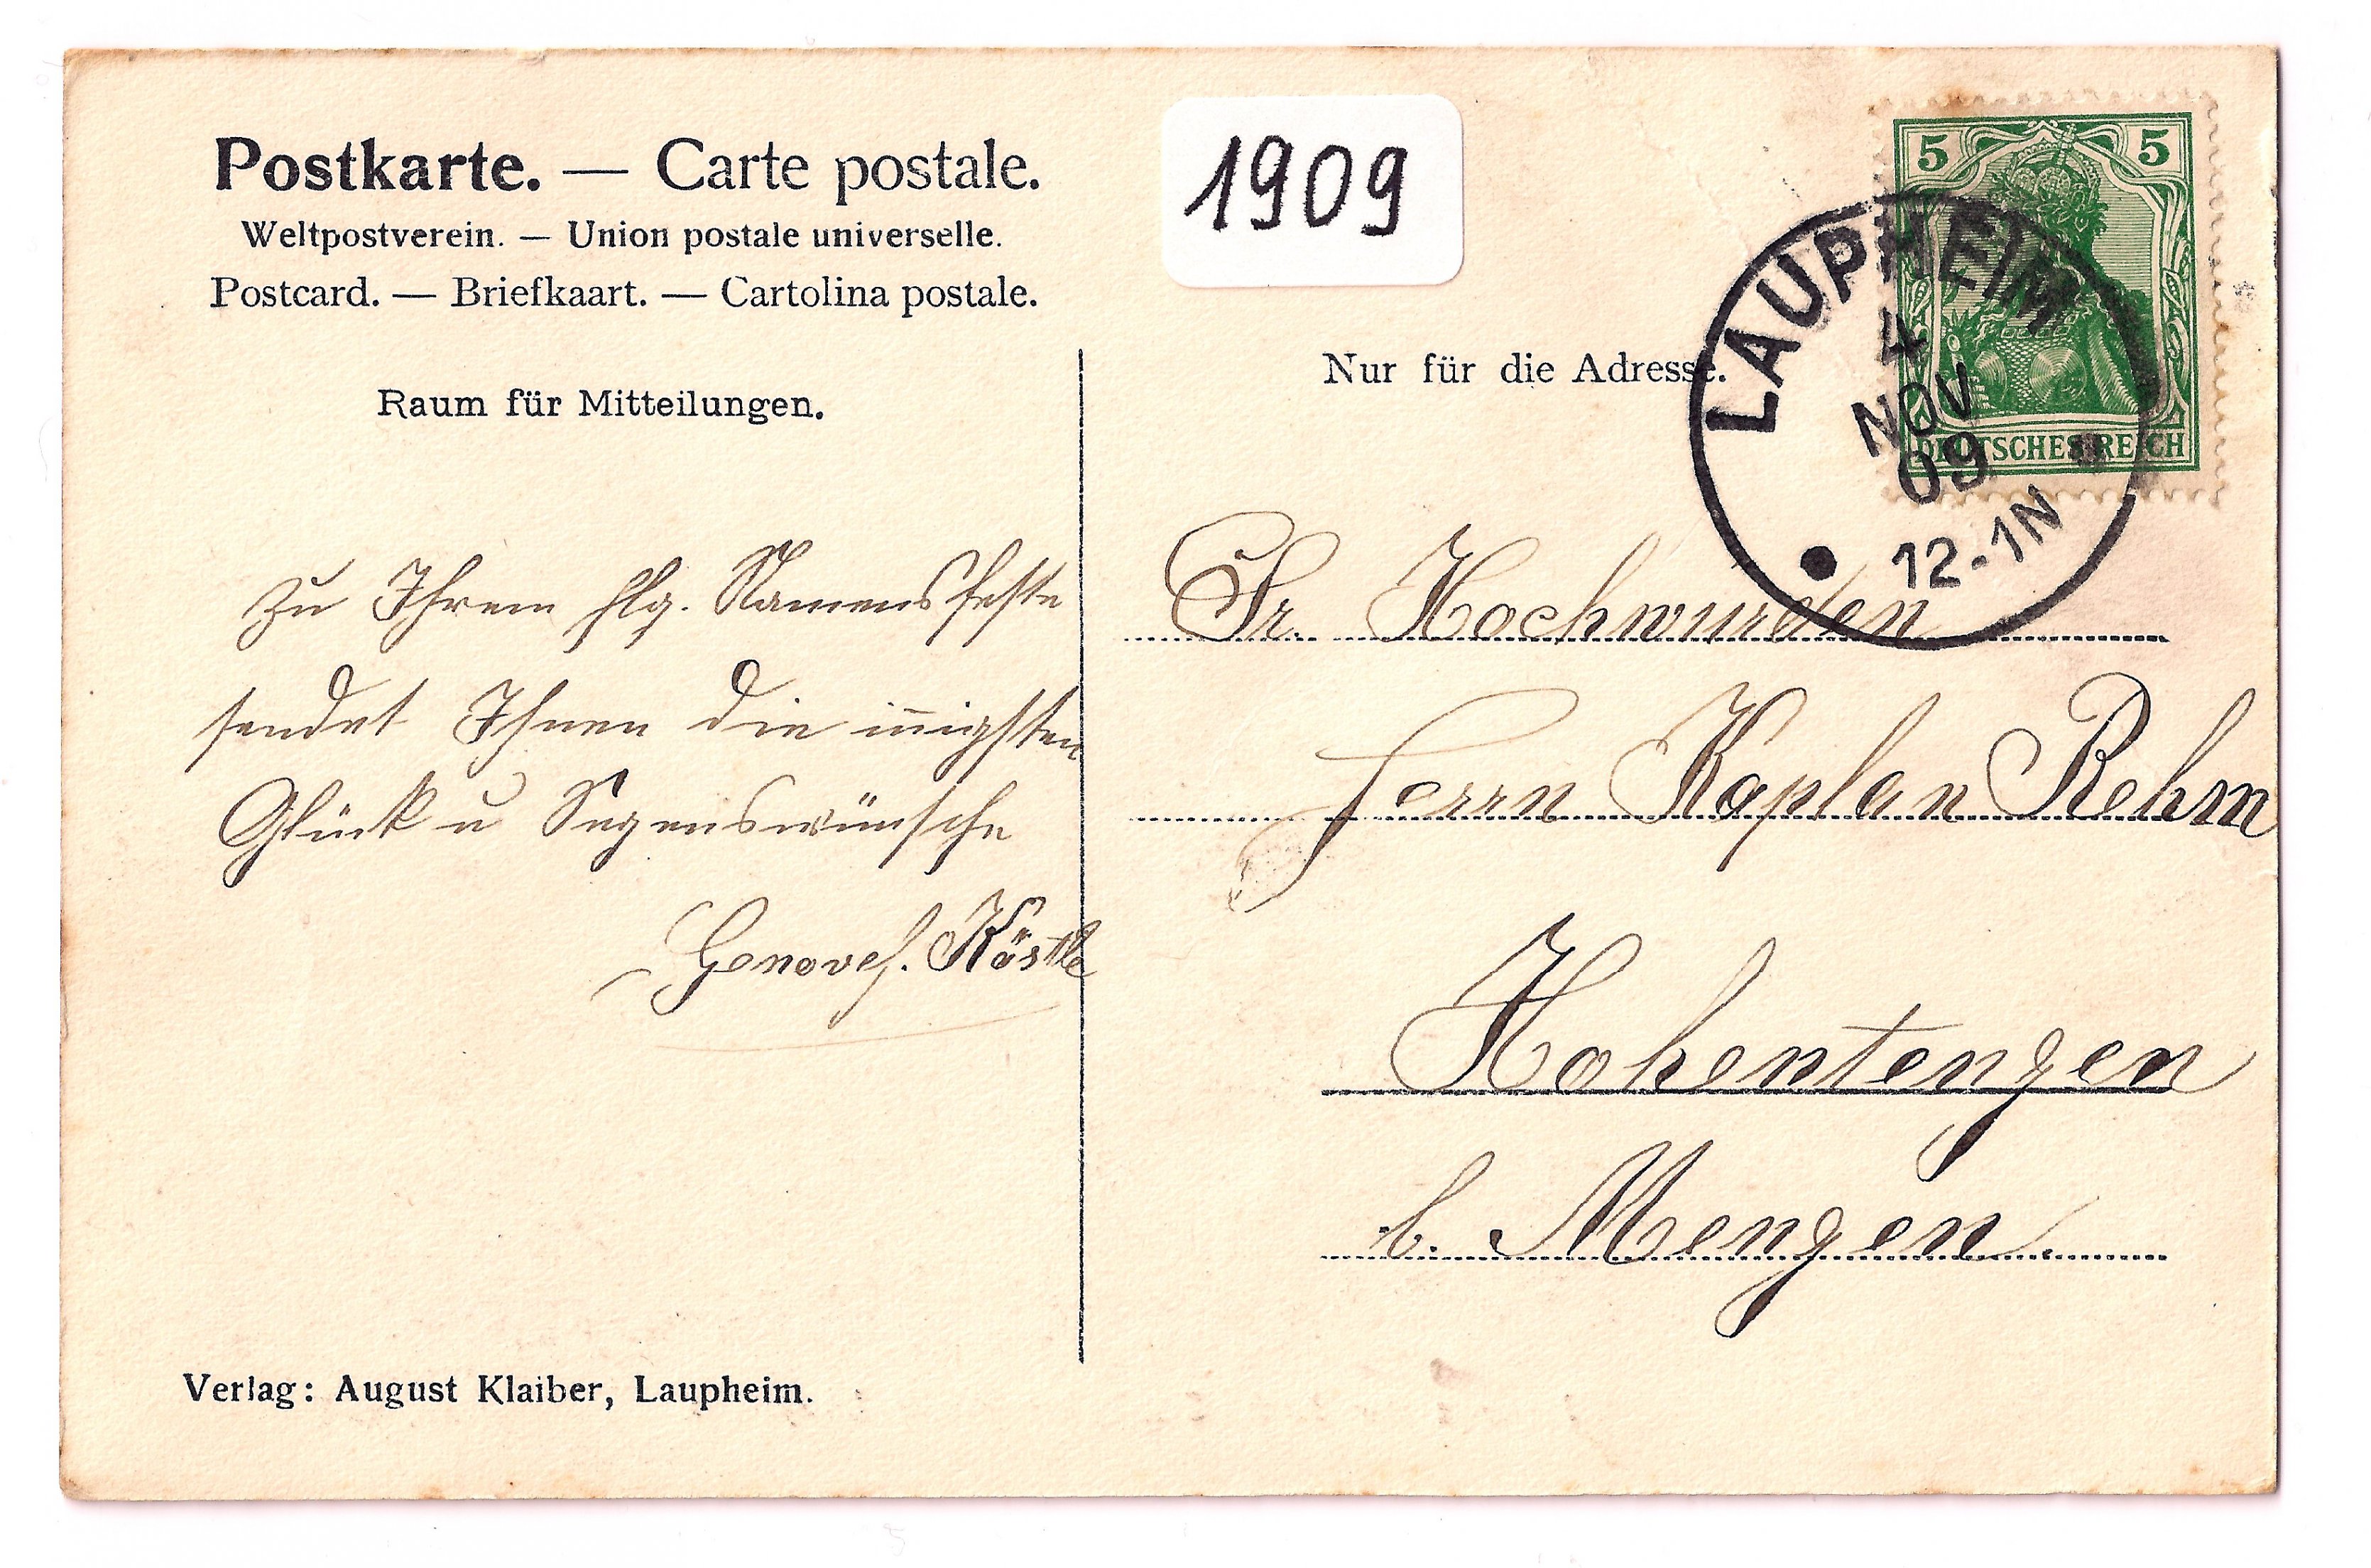 Postkarte. — Carte postale.
Weltpostverein. — Union postale universelle.
Postcard. — Briefkaart. — Cartolina postale.
1909
5 5
DEUTSCHES REICH
LAUPHEIM
4
NOV
09
12-1N
Raum für Mitteilungen.
Nur für die Adresse.
Zu Ihrem hlg. Namensfeste
sendet Ihnen die iñigsten
Glück u Segenswünsche
Genovef. Köstle
Sr. Hochwürden
Herrn Kaplan Rehm
Hohentengen
b. Mengen.
Verlag: August Klaiber, Laupheim.